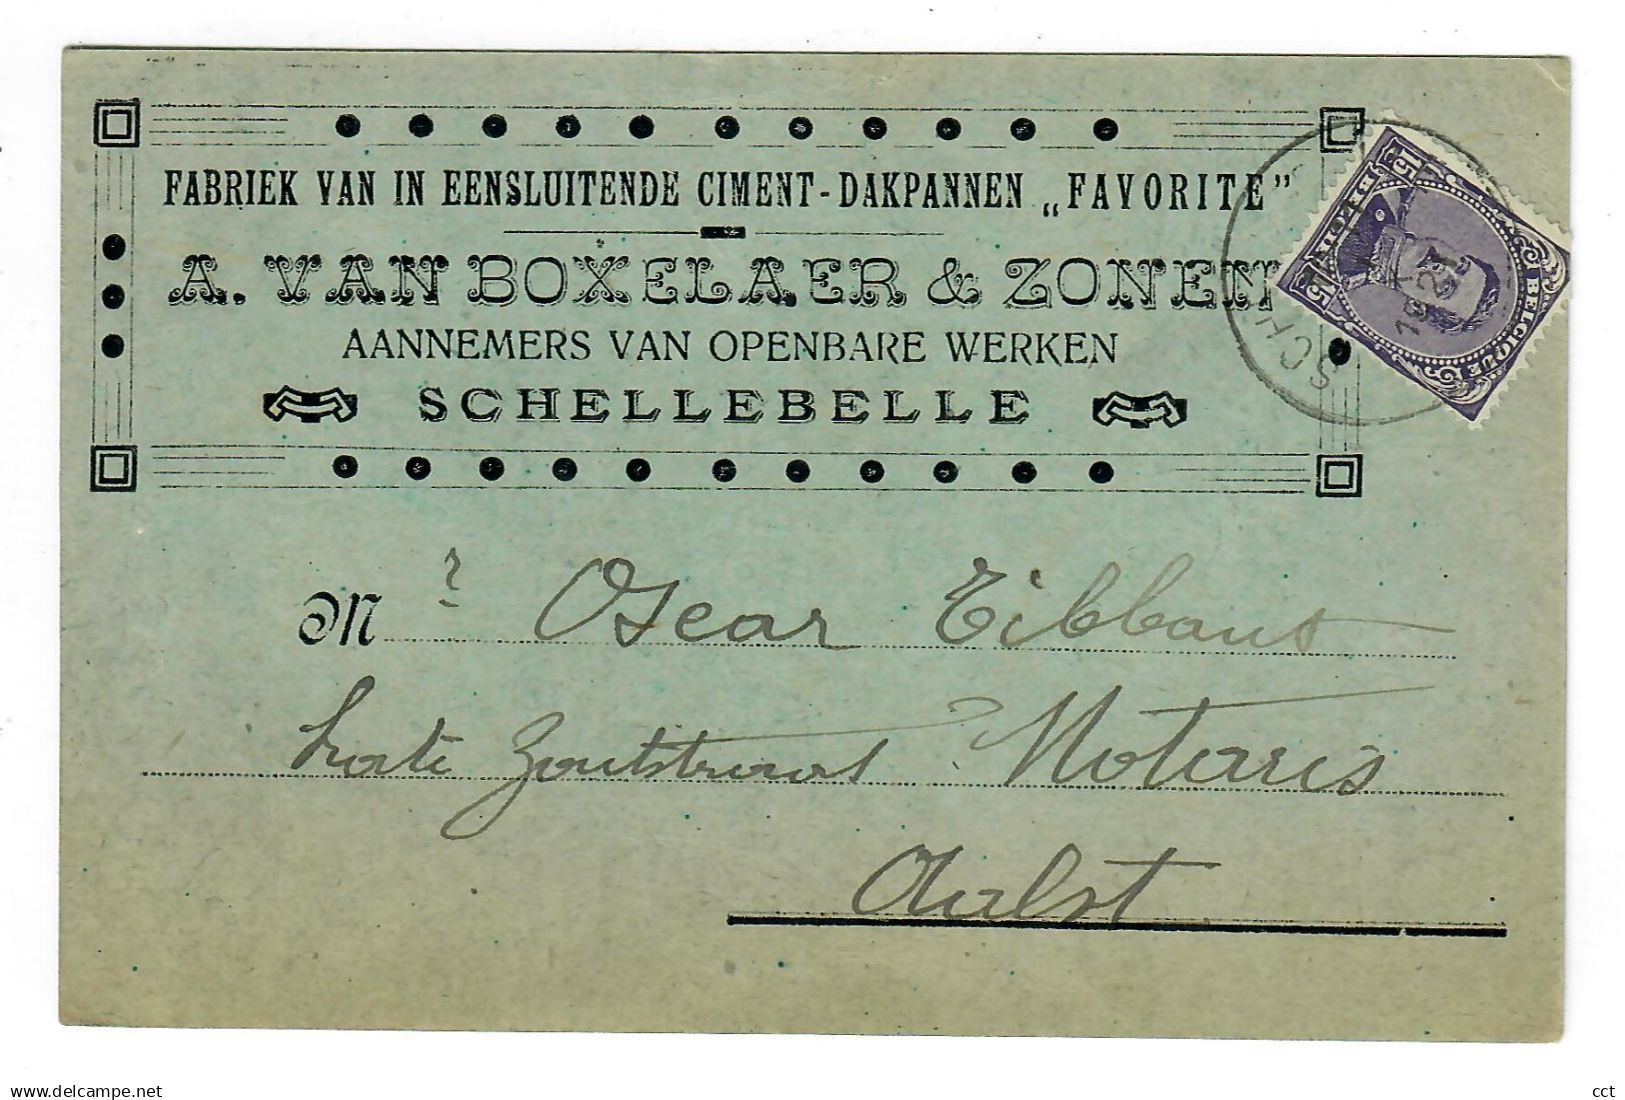 FABRIEK VAN IN EENSLUITENDE CIMENT-DAKPANNEN „FAVORITE”
A. VAN BOXELAER & ZONEN
AANNEMERS VAN OPENBARE WERKEN
SCHELLEBELLE
15
BELGIQUE
15
SCH
19
Mr Oscar Tibbaut
Korte Zoutstraat Notaris
Aalst
www.delcampe.net
cct